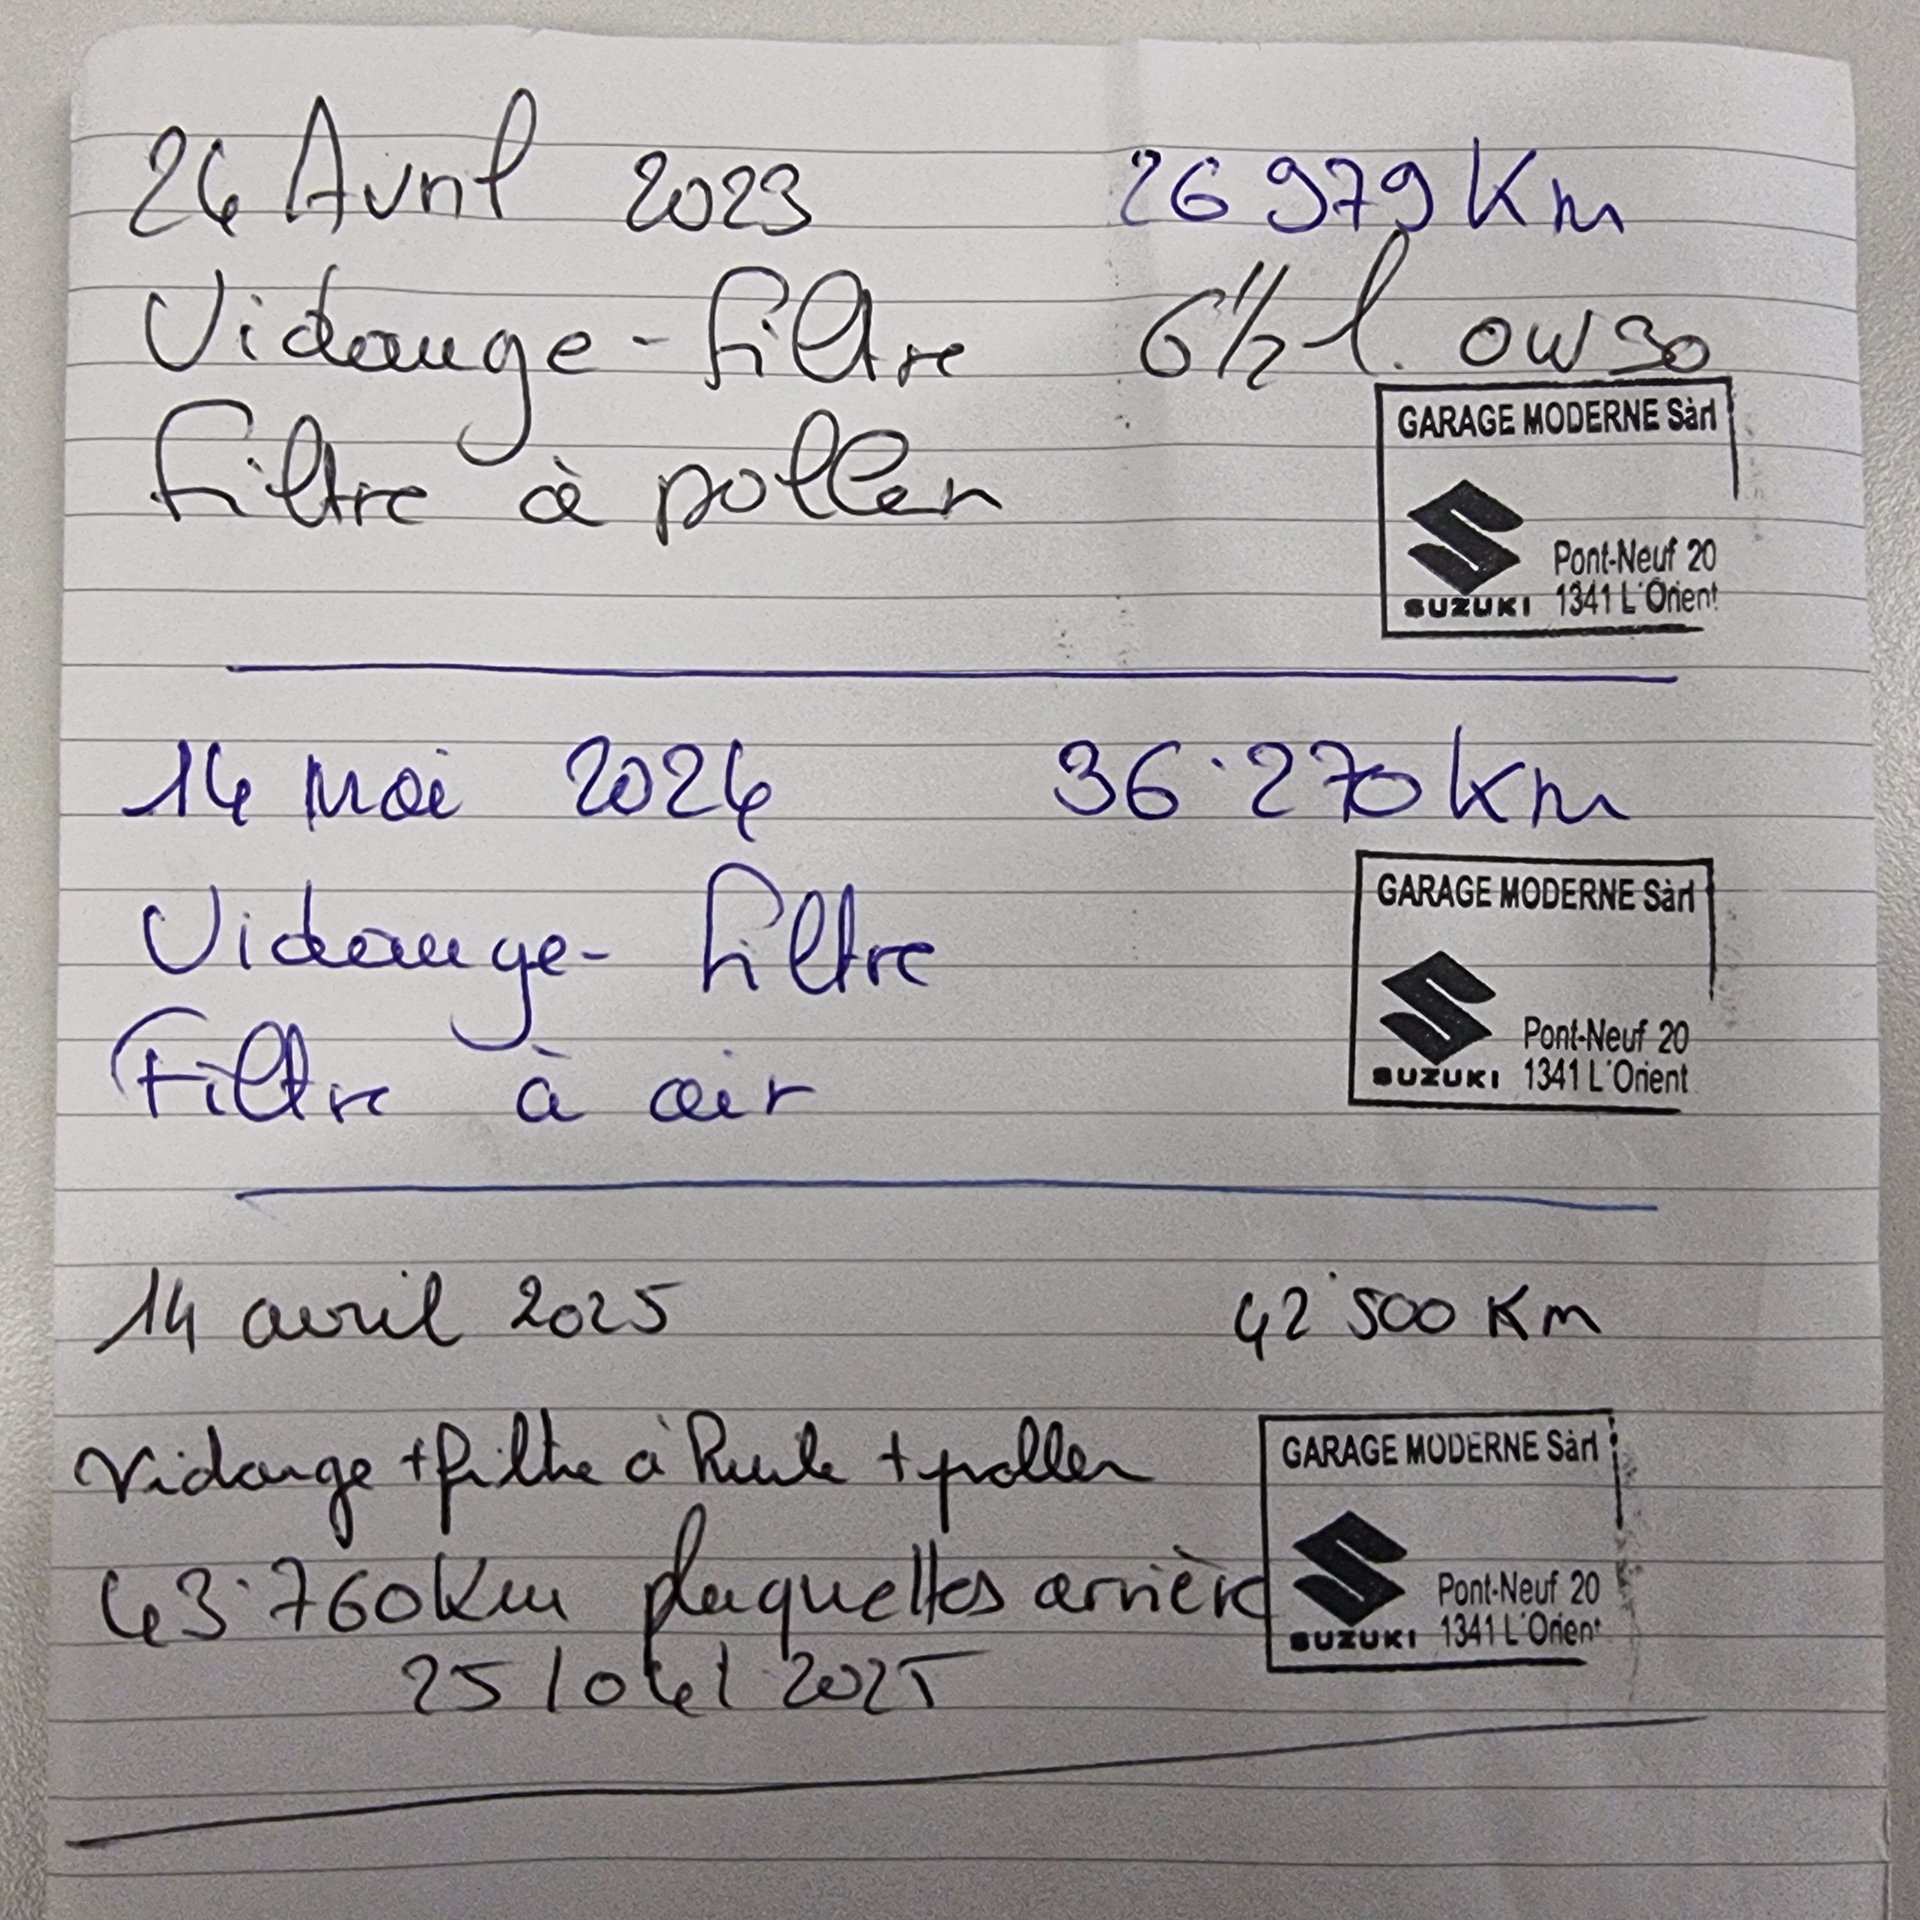 24 Avril 2023 26 979 Km
Vidange - filtre 6 1/2 l. 0W30
Filtre à pollen
GARAGE MODERNE Sàrl
SUZUKI
Pont-Neuf 20
1341 L'Orient
14 Mai 2024 36'270 Km
Vidange - filtre
Filtre à air
GARAGE MODERNE Sàrl
SUZUKI
Pont-Neuf 20
1341 L'Orient
14 avril 2025 42'500 Km
Vidange + filtre à huile + pollen
43'760 Km plaquettes arrière
25/04/2025
GARAGE MODERNE Sàrl
SUZUKI
Pont-Neuf 20
1341 L'Orient